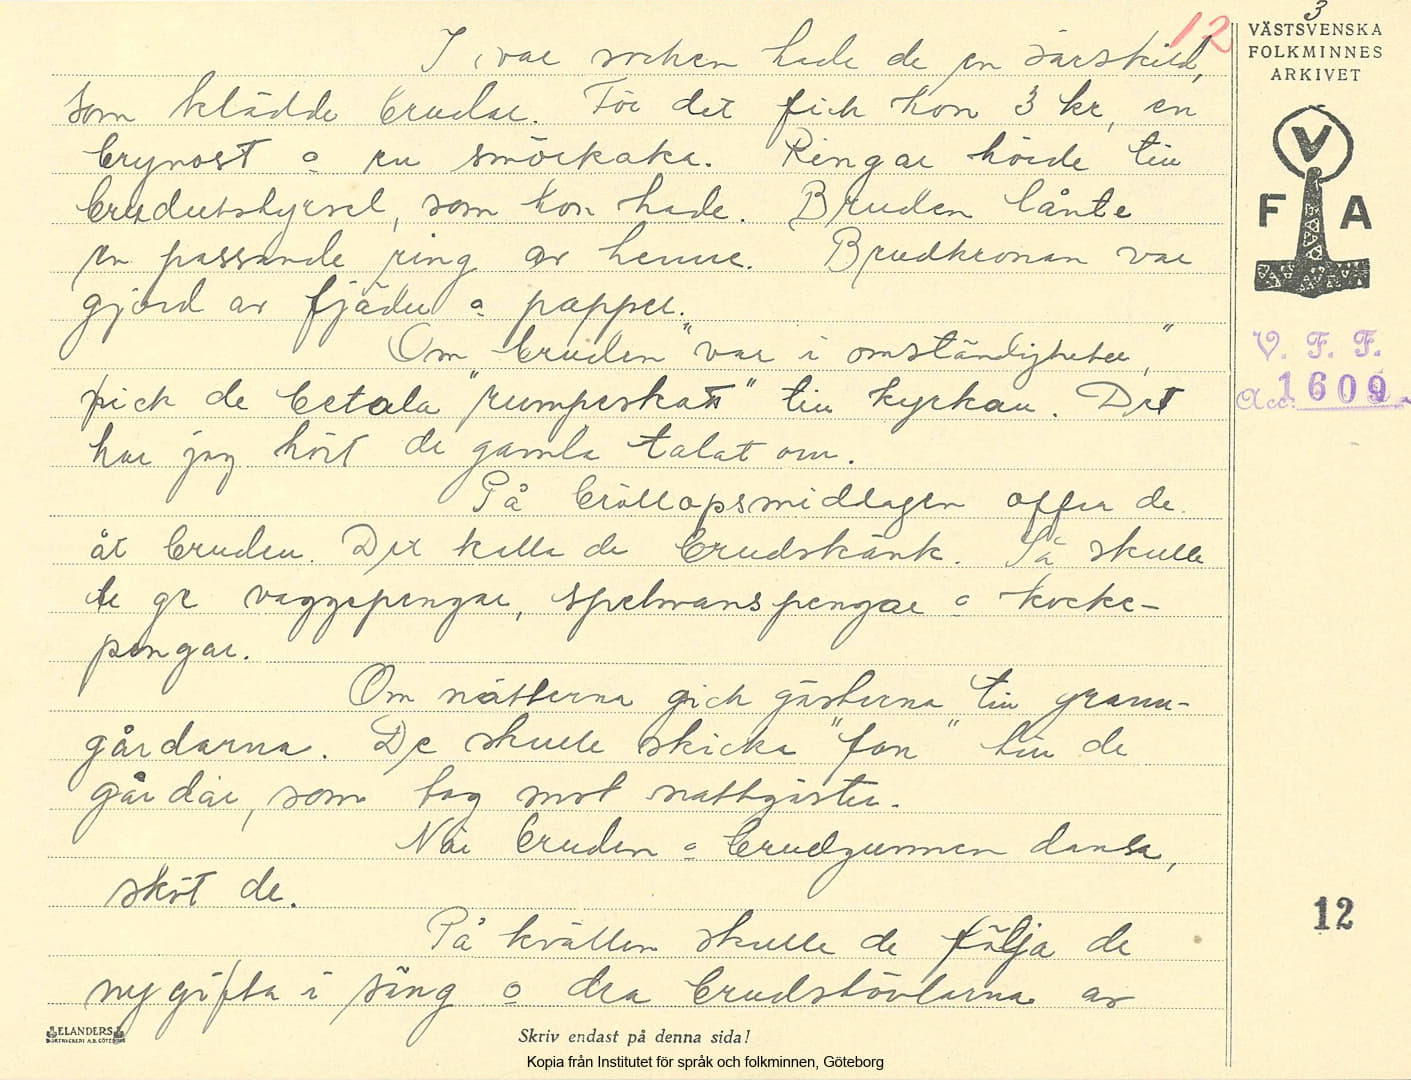 3
12
VÄSTSVENSKA
FOLKMINNES
ARKIVET
V
F A
V. F. F.
Acc. 1609
I var socken hade de en särskild,
som klädde brudar. För det fick hon 3 kr, en
brynost o en smörkaka. Ringar hörde till
brudutstyrsel, som hon hade. Bruden lånte
en passande ring av henne. Brudkronan var
gjord av fjäder o papper.
Om bruden "var i omständigheter,"
fick de betala "rumpeskatt" till kyrkan. Det
har jag hört de gamla talat om.
På bröllopsmiddagen offra de
åt bruden. Det kalla de brudskänk. Så skulle
de ge vaggepengar, spelmanspengar o kocke-
pengar.
Om nätterna gick gästerna till grann-
gårdarna. De skulle skicka "fon" till de
gårdar, som tog mot nattgäster.
När bruden o brudgummen dansa,
sköt de.
På kvällen skulle de följa de
nygifta i säng o dra brudstövlarna av
12
ELANDERS
BOKTRYCKERI A.B. GÖTEBORG
Skriv endast på denna sida!
Kopia från Institutet för språk och folkminnen, Göteborg